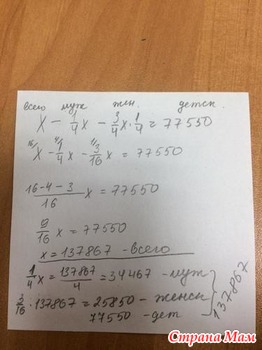 всего муж жен. детск.
X - 1/4x - 3/4x · 1/4 = 77550
16/X - 4/ 1/4x - 1/ 3/16x = 77550
16-4-3/16 x = 77550
9/16 x = 77550
x = 137867 - всего
1/4x = 137867/4 = 34467 - муж
3/16 · 137867 = 25850 - женск
77550 - дет
137867
Страна Мам